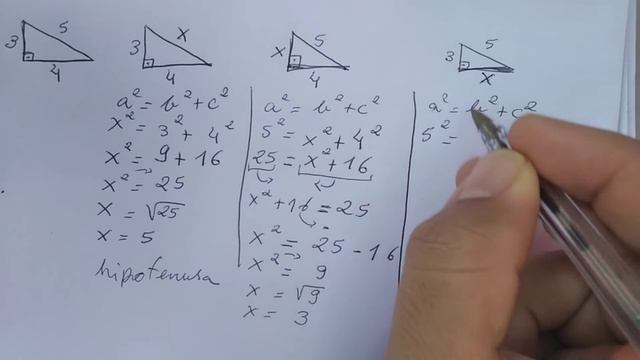 3 5 4
3 x 4
a² = b² + c²
x² = 3² + 4²
x² = 9 + 16
x² = 25
x = √25
x = 5
hipotenusa
x 5 4
a² = b² + c²
5² = x² + 4²
25 = x² + 16
x² + 16 = 25
x² = 25 - 16
x² = 9
x = √9
x = 3
3 5 x
a² = b² + c²
5² =